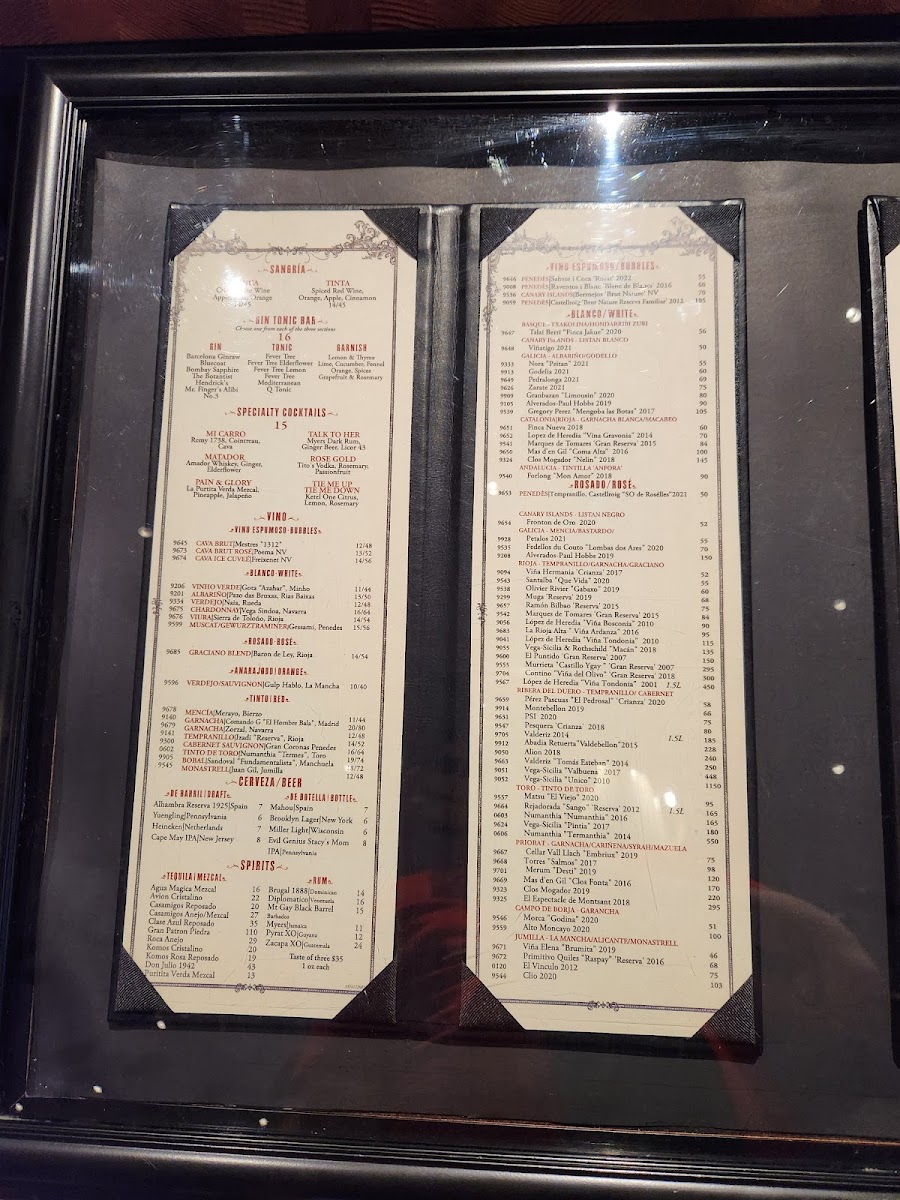 SANGRIA
TINTA
Spiced Red Wine,
Orange, Apple, Cinnamon
14/45
GIN TONIC BAR
Choose one from each of the three sections
16
GIN
Barcelona Ginraw
Bluecoat
Bombay Sapphire
The Botanist
Hendrick's
Mr. Finger's Alibi
No.3
TONIC
Fever Tree
Fever Tree Elderflower
Fever Tree Lemon
Fever Tree
Mediterranean
Q Tonic
GARNISH
Lemon & Thyme
Lime, Cucumber, Fennel
Orange, Spices
Grapefruit & Rosemary
SPECIALTY COCKTAILS
15
MI CARRO
Remy 1738, Cointreau,
Cava
TALK TO HER
Myers Dark Rum,
Ginger Beer, Licor 43
MATADOR
Amador Whiskey, Ginger,
Elderflower
ROSE GOLD
Tito's Vodka, Rosemary,
Passionfruit
PAIN & GLORY
La Puritta Verda Mezcal,
Pineapple, Jalapeño
TIE ME UP
TIE ME DOWN
Ketel One Citrus,
Lemon, Rosemary
VINO
VINO ESPUMOSO-BUBBLES
9645 CAVA BRUT|Mestres "1312" 12/48
9673 CAVA BRUT ROSÉ|Poema NV 13/52
9674 CAVA ICE CUVEÉ|Freixenet NV 14/56
BLANCO-WHITE
9206 VINHO VERDE|Gota "Azahar", Minho 11/44
9201 ALBARIÑO|Pazo das Bruxas, Rias Baixas 13/50
9334 VERDEJO|Naia, Rueda 12/48
9675 CHARDONNAY|Vega Sindoa, Navarra 16/64
9676 VIURA|Sierra de Toloño, Rioja 14/54
9599 MUSCAT/GEWURZTRAMINER|Gessami, Penedes 15/56
ROSADO-ROSÉ
9685 GRACIANO BLEND|Baron de Ley, Rioja 14/54
ANARAJODO|ORANGE
9596 VERDEJO/SAUVIGNON|Gulp Hablo, La Mancha 10/40
TINTO|RED
9678 MENCÍA|Merayo, Bierzo 11/44
9140 GARNACHA|Comando G "El Hombre Bala", Madrid 20/80
9679 GARNACHA|Zorzal, Navarra 12/48
9141 TEMPRANILLO|Izadi "Reserva", Rioja 14/52
9300 CABERNET SAUVIGNON|Gran Coronas Penedes 16/64
0602 TINTO DE TORO|Numanthia "Termes", Toro 19/74
9905 BOBAL|Sandoval "Fundamentalista", Manchuela
9545 MONASTRELL|Juan Gil, Jumilla 12/48
CERVEZA/BEER
DE BARRIL|DRAFT
Alhambra Reserva 1925|Spain 7
Yuengling|Pennsylvania 6
Heineken|Netherlands 7
Cape May IPA|New Jersey 8
DE BOTELLA|BOTTLE
Mahou|Spain 7
Brooklyn Lager|New York 6
Miller Light|Wisconsin 6
Evil Genius Stacy's Mom 8
IPA|Pennsylvania
SPIRITS
TEQUILA|MEZCAL
Agua Magica Mezcal 16
Avion Cristalino 22
Casamigos Reposado 20
Casamigos Anejo/Mezcal 27
Clase Azul Reposado 35
Gran Patron Piedra 110
Roca Anejo 29
Komos Cristalino 20
Komos Rosa Reposado 19
Don Julio 1942 43
Puritita Verda Mezcal 13
RUM
Brugal 1888|Dominican 14
Diplomatico|Venezuela 16
Mt Gay Black Barrel 15
Barbados
Myers|Jamaica 11
Pyrat XO|Guyana 12
Zacapa XO|Guatemala 24
Taste of three $35
1 oz each
VINO ESPUMOSO/BUBBLES
9646 PENEDÈS|Sabate i Coca 2022 55
9008 PENEDÈS|Raventos i Blanc 'Blanc de Blancs' 2016 60
9536 CANARY ISLANDS|Bermejos 'Brut Nature' NV 70
9059 PENEDÈS|Castellroig 'Brut Nature Reserva Familiar' 2012 105
BLANCO/WHITE
BASQUE - TXAKOLINA/HONDARRIBI ZURI
9647 Talai Berri "Finca Jakue" 2020 56
CANARY ISLANDS - LISTAN BLANCO
9648 Viñatigo 2021 50
GALICIA - ALBARIÑO/GODELLO
9333 Nora "Peitan" 2021 55
9913 Godelia 2021 60
9649 Pedralonga 2021 69
9626 Zarate 2021 75
9909 Granbazan "Limousin" 2020 80
9105 Alverados-Paul Hobbs 2019 90
9539 Gregory Perez "Mengoba las Botas" 2017 105
CATALONIA|RIOJA - GARNACHA BLANCA/MACABEO
9651 Finca Nueva 2018 60
9652 Lopez de Heredia "Vina Gravonia" 2014 70
9541 Marques de Tomares 'Gran Reserva' 2015 84
9650 Mas d'en Gil "Coma Alta" 2016 100
9324 Clos Mogador "Nelin" 2018 145
ANDALUCIA - TINTILLA 'ANPORA'
9540 Forlong "Mon Amor" 2018 90
ROSADO/ROSÉ
9653 PENEDÈS|Tempranillo, Castellroig "SO de Rosélles"2021 50
CANARY ISLANDS - LISTAN NEGRO
9654 Fronton de Oro 2020 52
GALICIA - MENCIA/BASTARDO/
9928 Petalos 2021 55
9535 Fedellos du Couto "Lombas dos Ares" 2020 70
9208 Alverados-Paul Hobbs 2019 150
RIOJA - TEMPRANILLO/GARNACHA/GRACIANO
9094 Viña Hermania 'Crianza' 2017 52
9543 Santalba "Que Vida" 2020 55
9538 Olivier Rivier "Gabaxo" 2019 60
9299 Muga 'Reserva' 2019 68
9657 Ramón Bilbao 'Reserva' 2015 75
9542 Marques de Tomares 'Gran Reserva' 2015 84
9056 López de Heredia "Viña Bosconia" 2010 90
9683 La Rioja Alta " Viña Ardanza" 2016 95
9041 López de Heredia "Viña Tondonia" 2010 115
9055 Vega-Sicilia & Rothschild "Macán" 2018 135
9600 El Puntido 'Gran Reserva' 2007 150
9555 Murrieta "Castillo Ygay " 'Gran Reserva' 2007 295
9704 Contino "Viña del Olivo" 'Gran Reserva' 2018 300
9567 López de Heredia "Viña Tondonia" 2001 1.5L 450
RIBERA DEL DUERO - TEMPRANILLO/ CABERNET
9659 Pérez Pascuas "El Pedrosal" 'Crianza' 2020 58
9914 Montebellon 2019 66
9631 PSI 2020 75
9547 Pesquera 'Crianza' 2018 80
9705 Valderiz 2014 1.5L 185
9912 Abadia Retuerta"Valdebellon"2015 228
9050 Alion 2018 240
9663 Valderiz "Tomás Esteban" 2014 250
9051 Vega-Sicilia "Valbuena" 2017 448
9052 Vega-Sicilia "Unico" 2010 1150
TORO - TINTO DE TORO
9557 Matsu "El Viejo" 2020 95
9664 Rejadorada "Sango" 'Reserva' 2012 1.5L 165
0603 Numanthia "Numanthia" 2016 165
9624 Vega-Sicilia "Pintia" 2017 180
0606 Numanthia "Termanthia" 2014 550
PRIORAT - GARNACHA/CARIÑENA/SYRAH/MAZUELA
9667 Cellar Vall Llach "Embriux" 2019 75
9668 Torres "Salmos" 2017 98
9701 Merum "Desti" 2019 120
9669 Mas d'en Gil "Clos Fonta" 2016 170
9323 Clos Mogador 2019 220
9325 El Espectacle de Montsant 2018 295
CAMPO DE BORJA - GARANCHA
9546 Morca "Godina" 2020 51
9559 Alto Moncayo 2020 100
JUMILLA - LA MANCHA/ALICANTE/MONASTRELL
9671 Viña Elena "Brumita" 2019 46
9672 Primitivo Quiles "Raspay" 'Reserva' 2016 68
0120 El Vinculo 2012 75
9544 Clio 2020 103